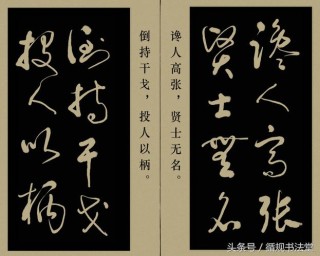 谗人高张
贤士無名
谗人高张，贤士无名。
倒持干戈，投人以柄。
倒持干戈
投人以柄
头条号/循规书法堂